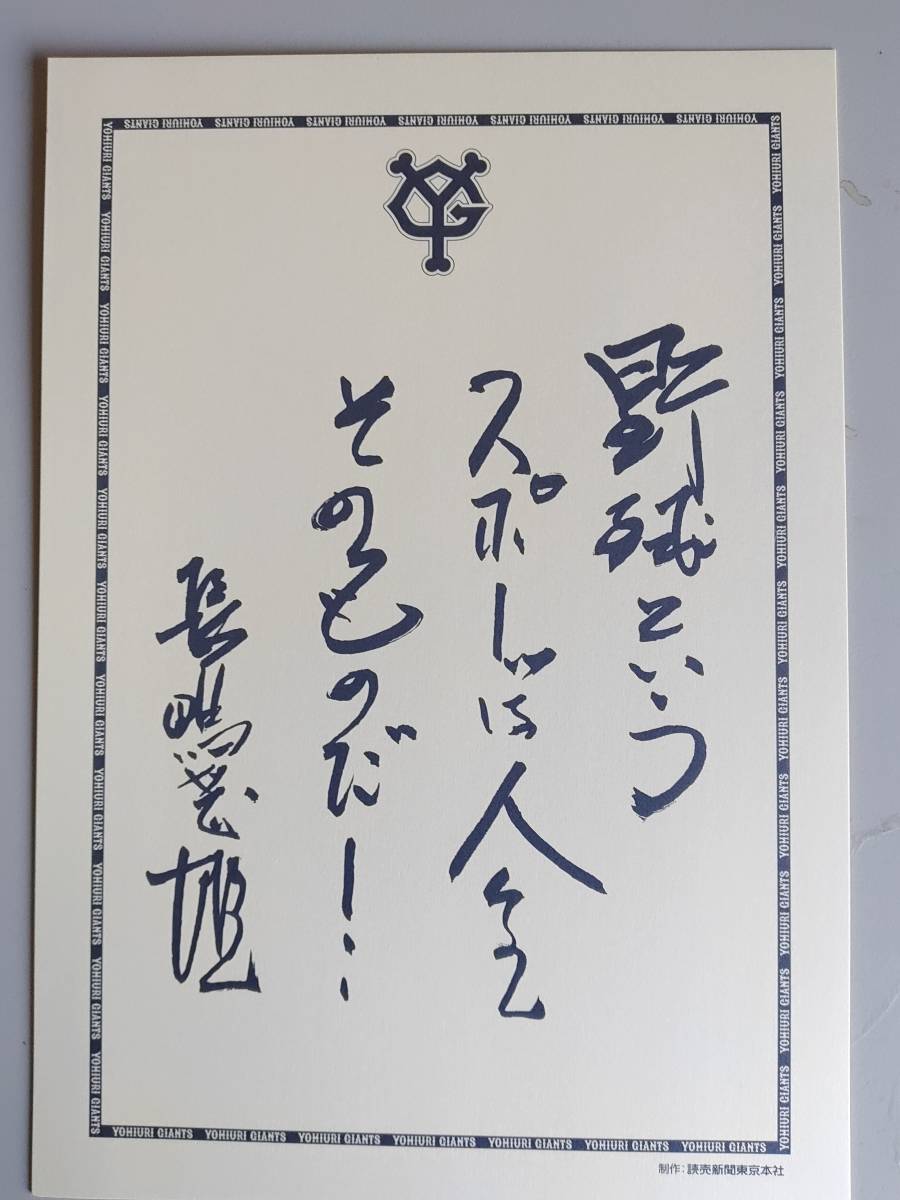 YOMIURI GIANTS YOMIURI GIANTS YOMIURI GIANTS YOMIURI GIANTS YOMIURI GIANTS YOMIURI GIANTS YOMIURI GIANTS
野球という
スポーツは人生
そのものだ！
長嶋茂雄
YOMIURI GIANTS YOMIURI GIANTS YOMIURI GIANTS YOMIURI GIANTS YOMIURI GIANTS YOMIURI GIANTS YOMIURI GIANTS
制作：読売新聞東京本社